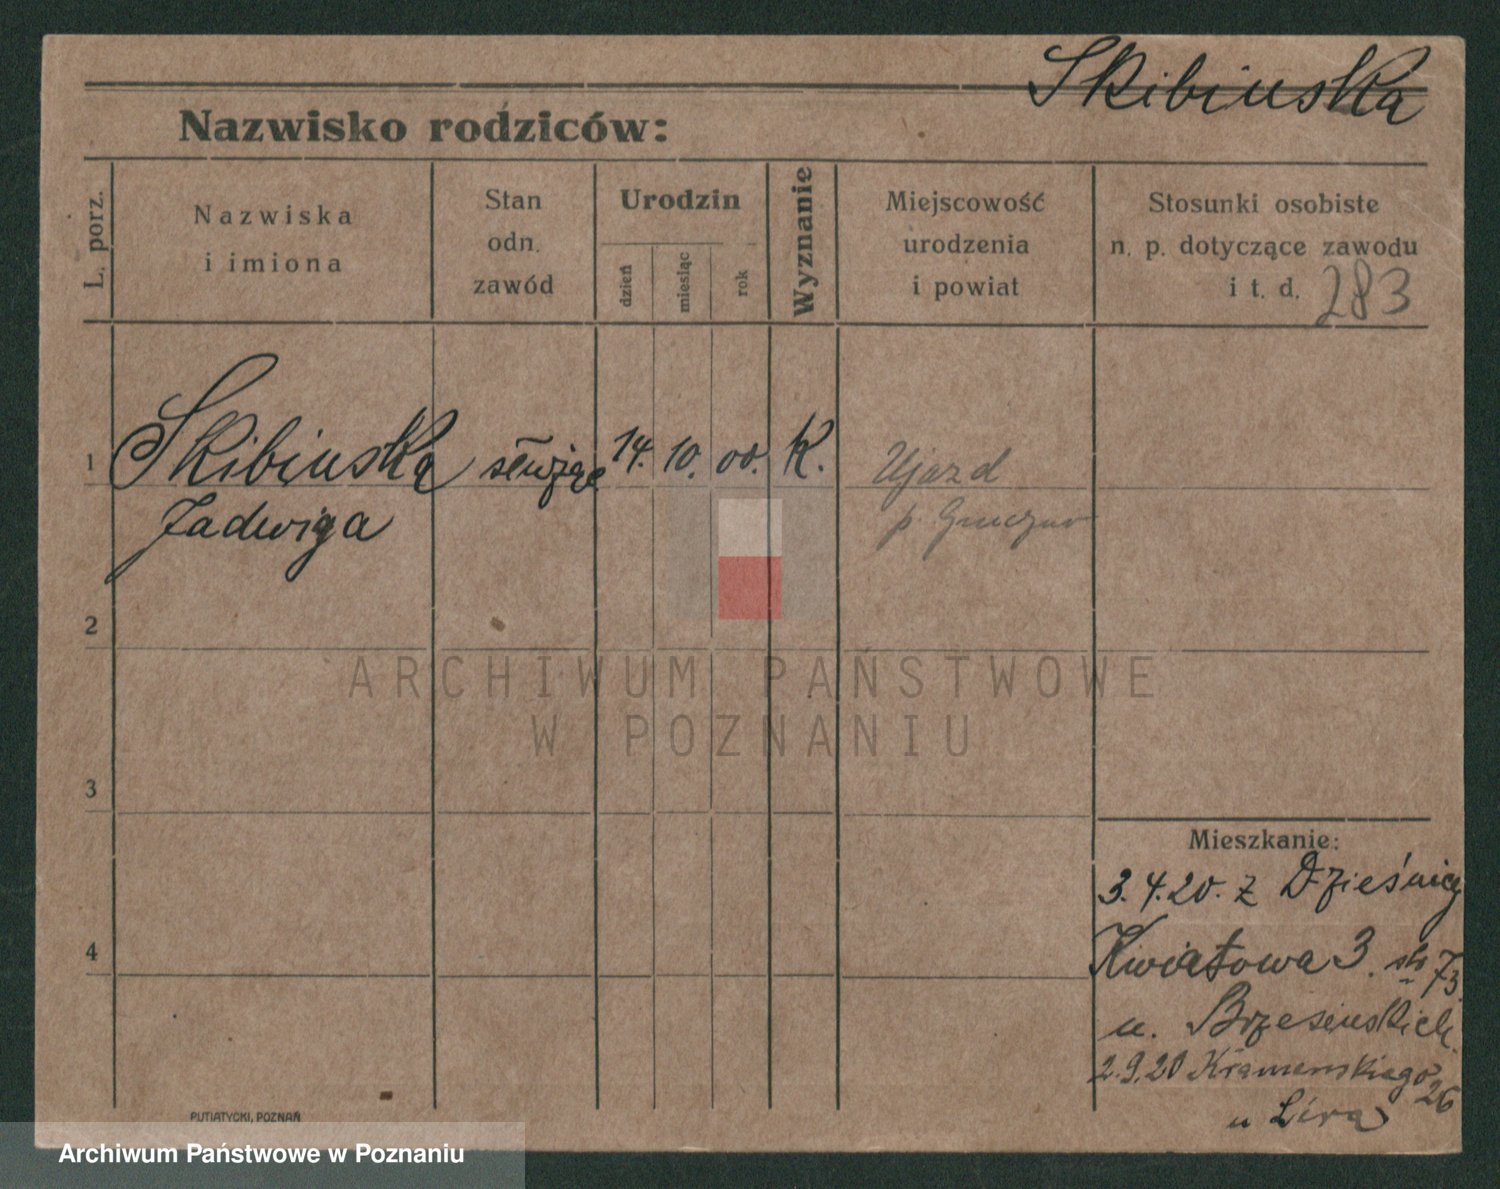 Skibinska
Nazwisko rodziców:
L. porz.
Nazwiska
i imiona
Stan
odn.
zawód
Urodzin
dzień
miesiąc
rok
Wyznanie
Miejscowość
urodzenia
i powiat
Stosunki osobiste
n. p. dotyczące zawodu
i t. d. 283
1 Skibinska 14. 10. 00. K. Ujazd
Jadwiga p.
2
ARCHIWUM PAŃSTWOWE
W POZNANIU
3
Mieszkanie:
3.4.20. z
4
Kwiatowa 3.
u.
2.9.20 26
u Lira
PUTIATYCKI, POZNAŃ
Archiwum Państwowe w Poznaniu